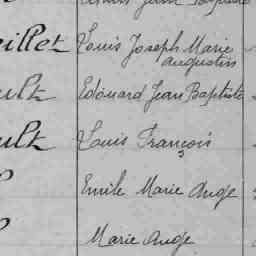 illet Louis Joseph Marie
Augustin
ult Edouard Jean Baptiste
ult Louis François
Emile Marie Ange
Marie Ange